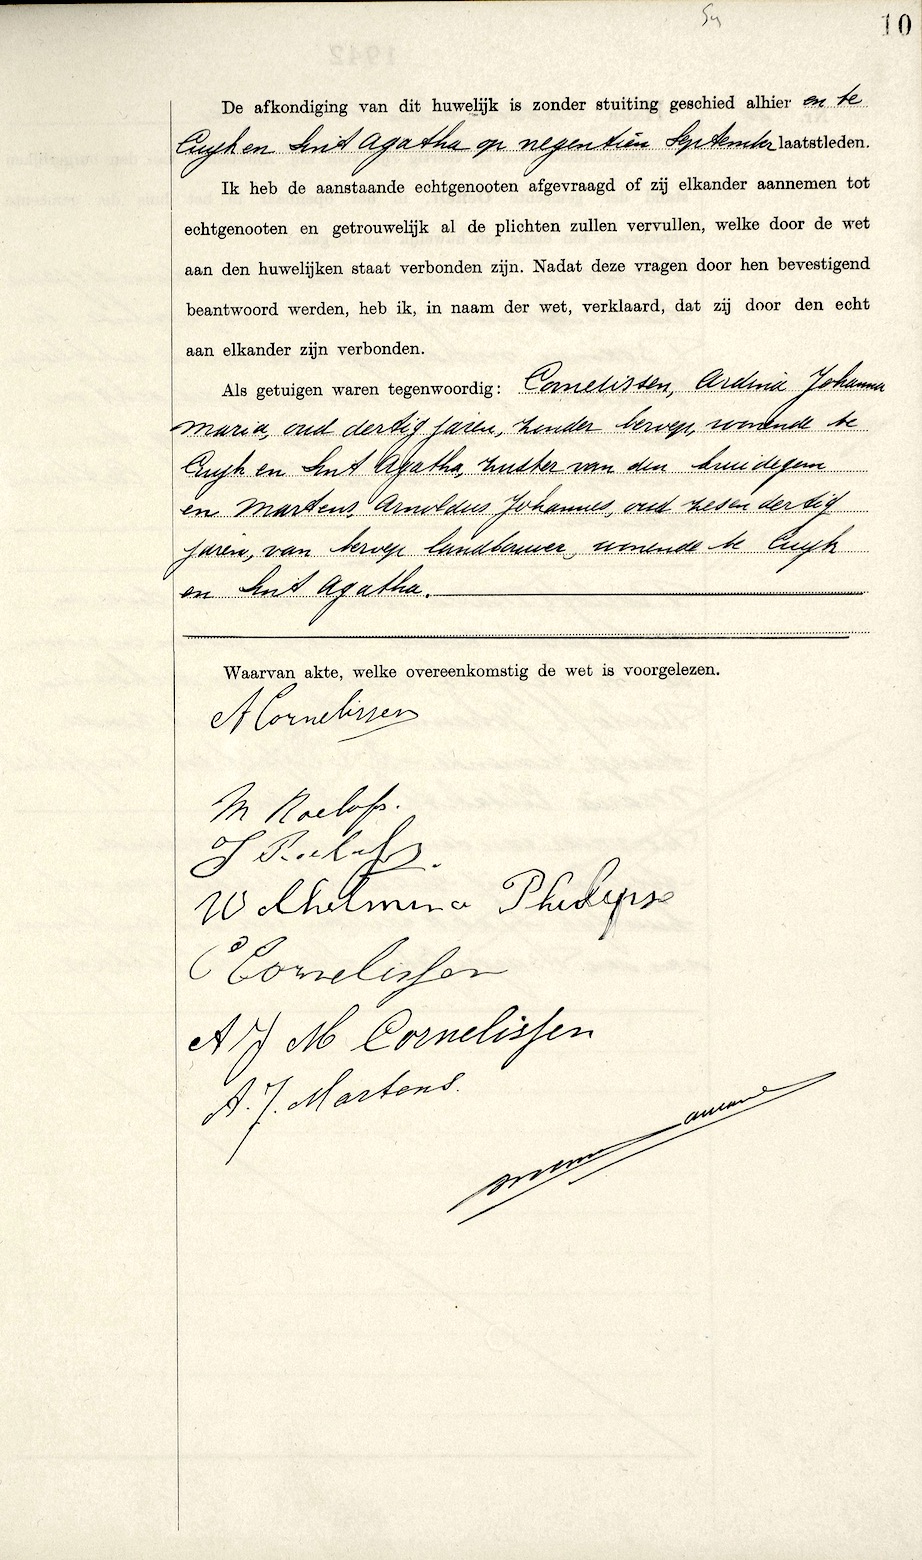 10
De afkondiging van dit huwelijk is zonder stuiting geschied alhier en te
Cuyk en Sint Agatha op negentien September laatstleden.
Ik heb de aanstaande echtgenooten afgevraagd of zij elkander aannemen tot
echtgenooten en getrouwelijk al de plichten zullen vervullen, welke door de wet
aan den huwelijken staat verbonden zijn. Nadat deze vragen door hen bevestigend
beantwoord werden, heb ik, in naam der wet, verklaard, dat zij door den echt
aan elkander zijn verbonden.
Als getuigen waren tegenwoordig: Cornelissen, Ardina Johanna
Maria, oud dertig jaren, zonder beroep, wonende te
Cuyk en Sint Agatha, zuster van den bruidegom
en Martens, Arnoldus Johannes, oud zesendertig
jaren, van beroep landbouwer, wonende te Cuyk
en Sint Agatha.
Waarvan akte, welke overeenkomstig de wet is voorgelezen.
A Cornelissen
M Roelofs.
J Roelofs.
Wilhelmina Philipse
C Cornelissen
A J M Cornelissen
A. J. Martens.